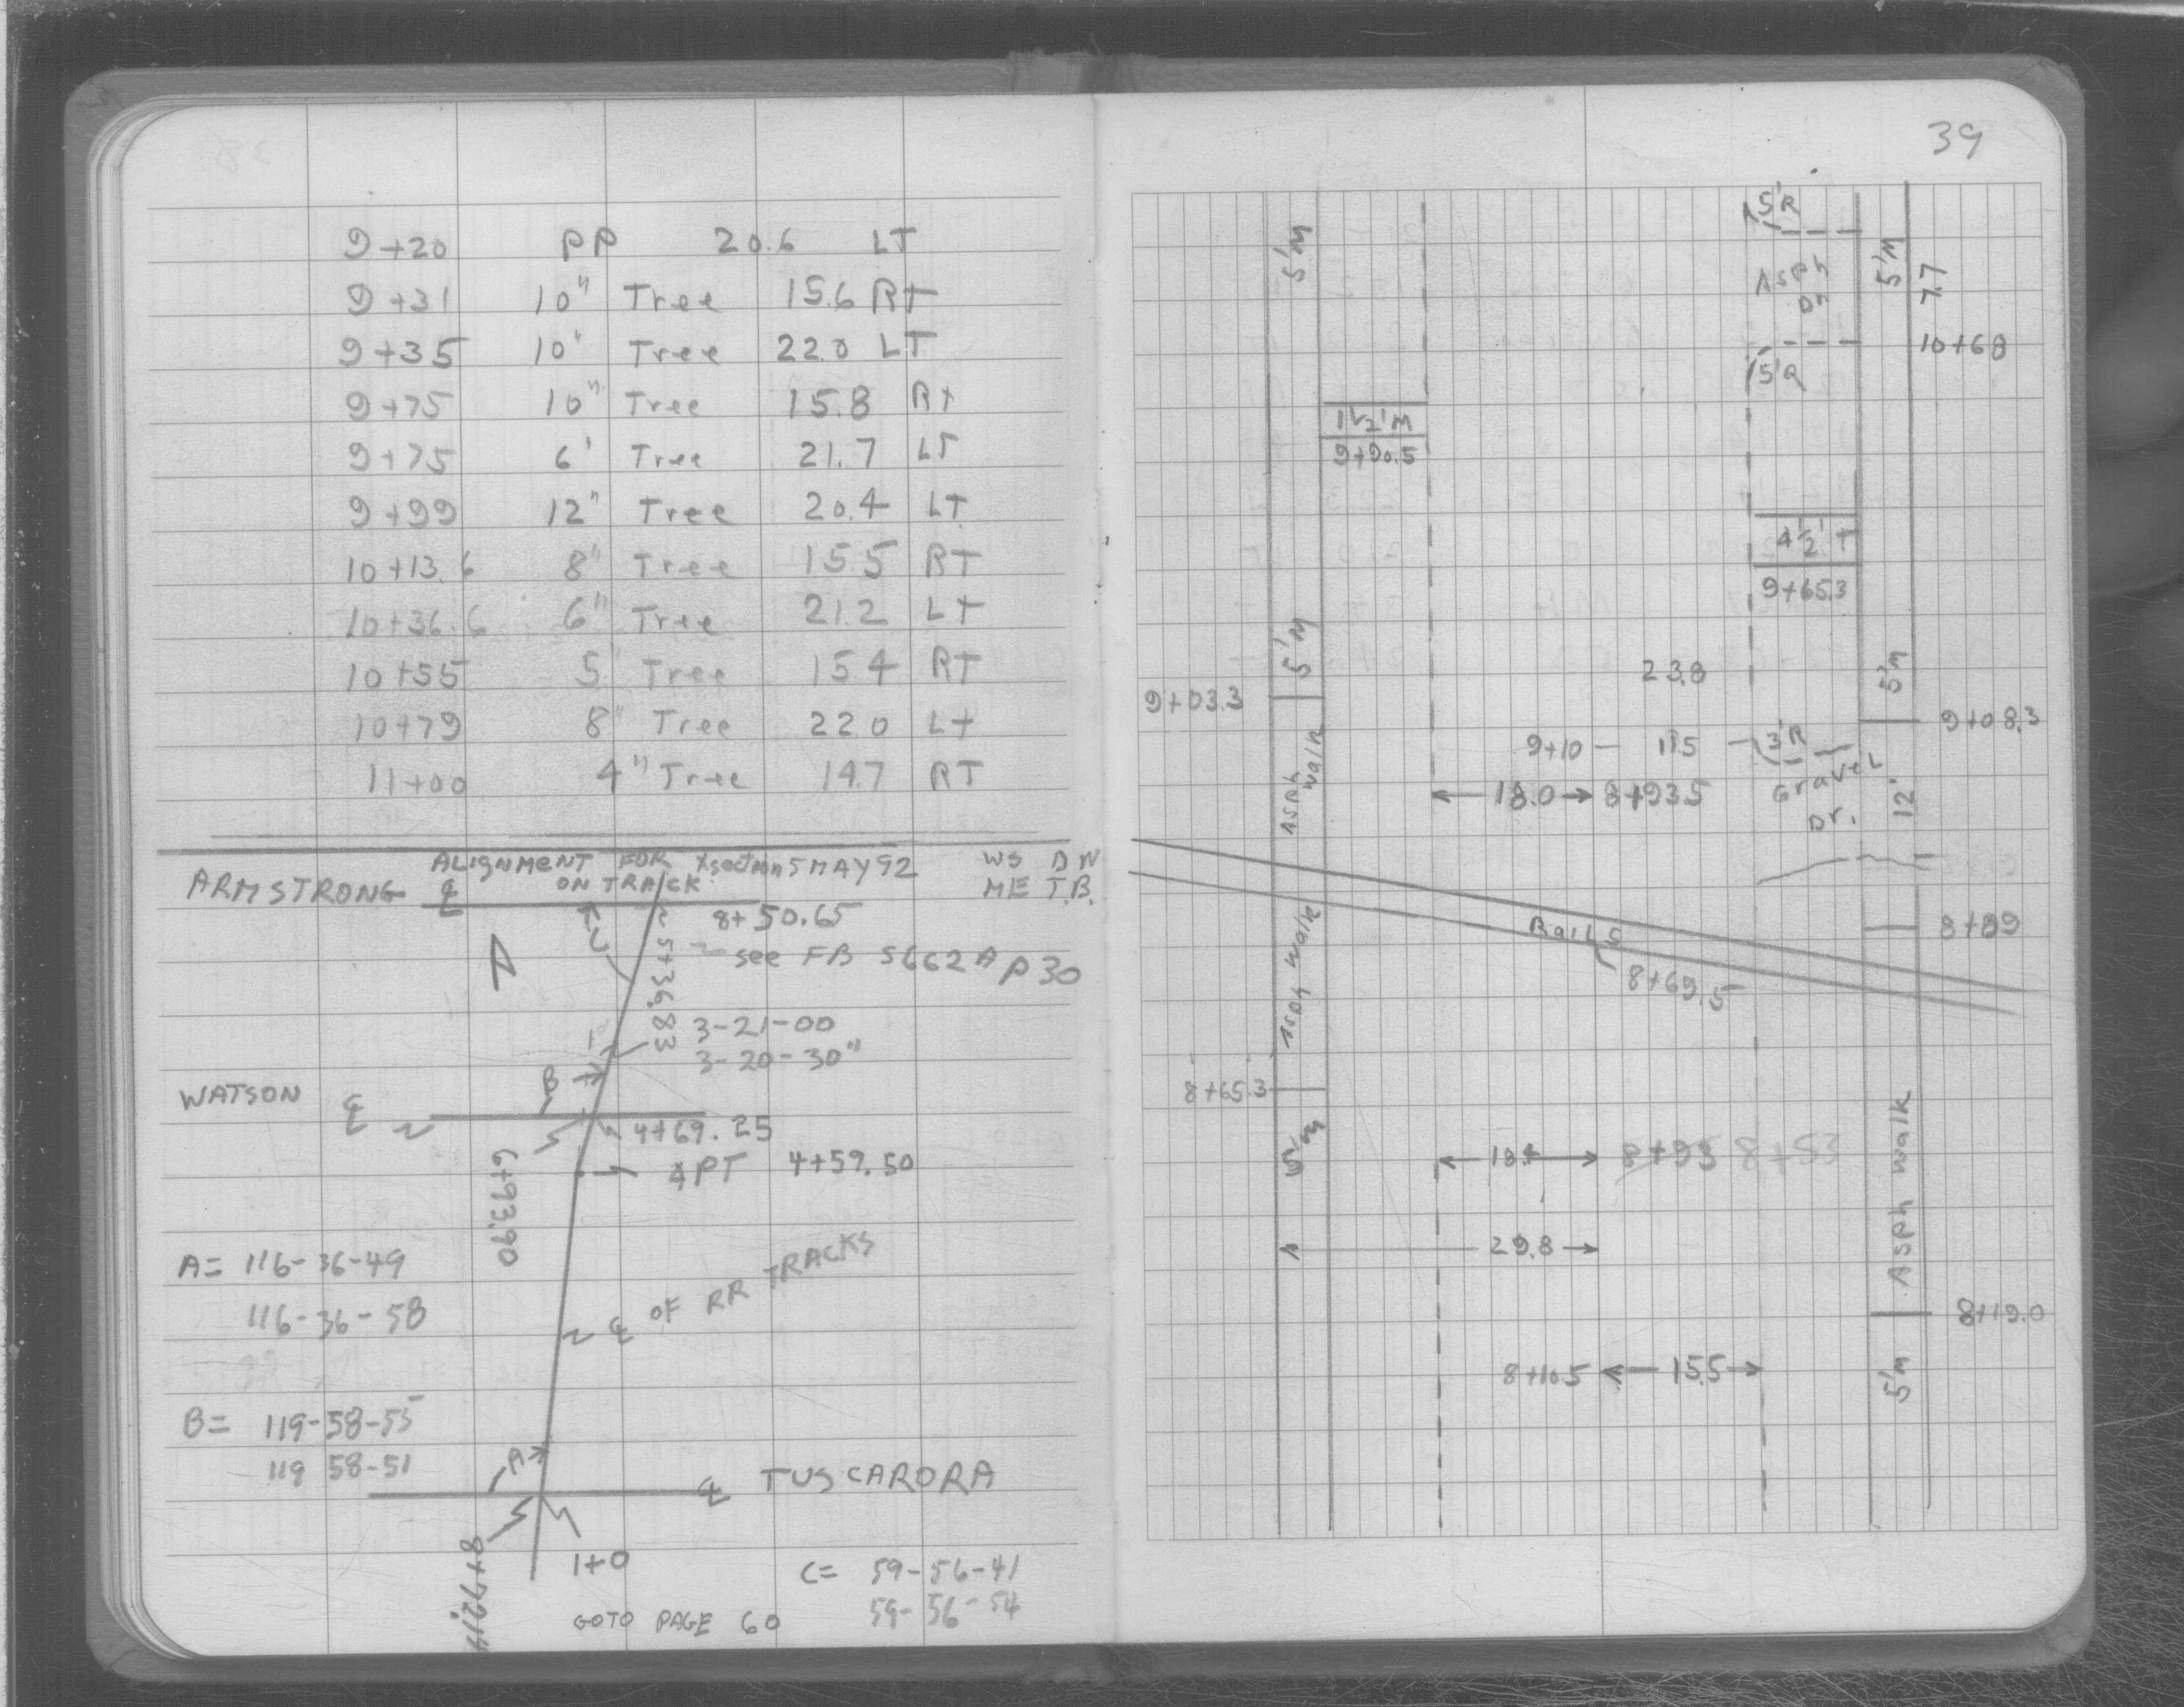 9+20 PP 20.6 LT
9+31 10" Tree 15.6 RT
9+35 10" Tree 22.0 LT
9+75 10" Tree 15.8 RT
9+75 6' Tree 21.7 LT
9+99 12" Tree 20.4 LT
10+13.6 8" Tree 15.5 RT
10+36.6 6" Tree 21.2 LT
10+55 5' Tree 15.4 RT
10+79 8" Tree 22.0 LT
11+00 4" Tree 14.7 RT
ALIGNMENT FOR Xsection 5 MAY 92 WS DW
ARMSTRONG ℄ ON TRACK ME T.B.
8+50.65
C
5+36.83
see FB 5662A P30
3-21-00
3-20-30"
B
WATSON ℄
4+69.25
PT 4+59.50
6+93.90
A= 116-36-49
116-36-58
℄ OF RR TRACKS
B= 119-58-55
119 58-51
A
℄ TUSCARORA
1+0
C= 59-56-41
59-56-54
GOTO PAGE 60
39
5'R
5'M
5'M
7.7
Asph
Dr
10+68
5'R
1½'M
9+90.5
4½' T
9+65.3
5'M
23.8
5'M
9+03.3
9+08.3
9+10 11.5 3'R
Asph walk
18.0 8+93.5
Gravel
Dr.
12'
Rails
8+89
Asph walk
8+69.5
8+65.3
5'M
8+53
29.8
Asph walk
8+19.0
8+10.5 15.5
5'M